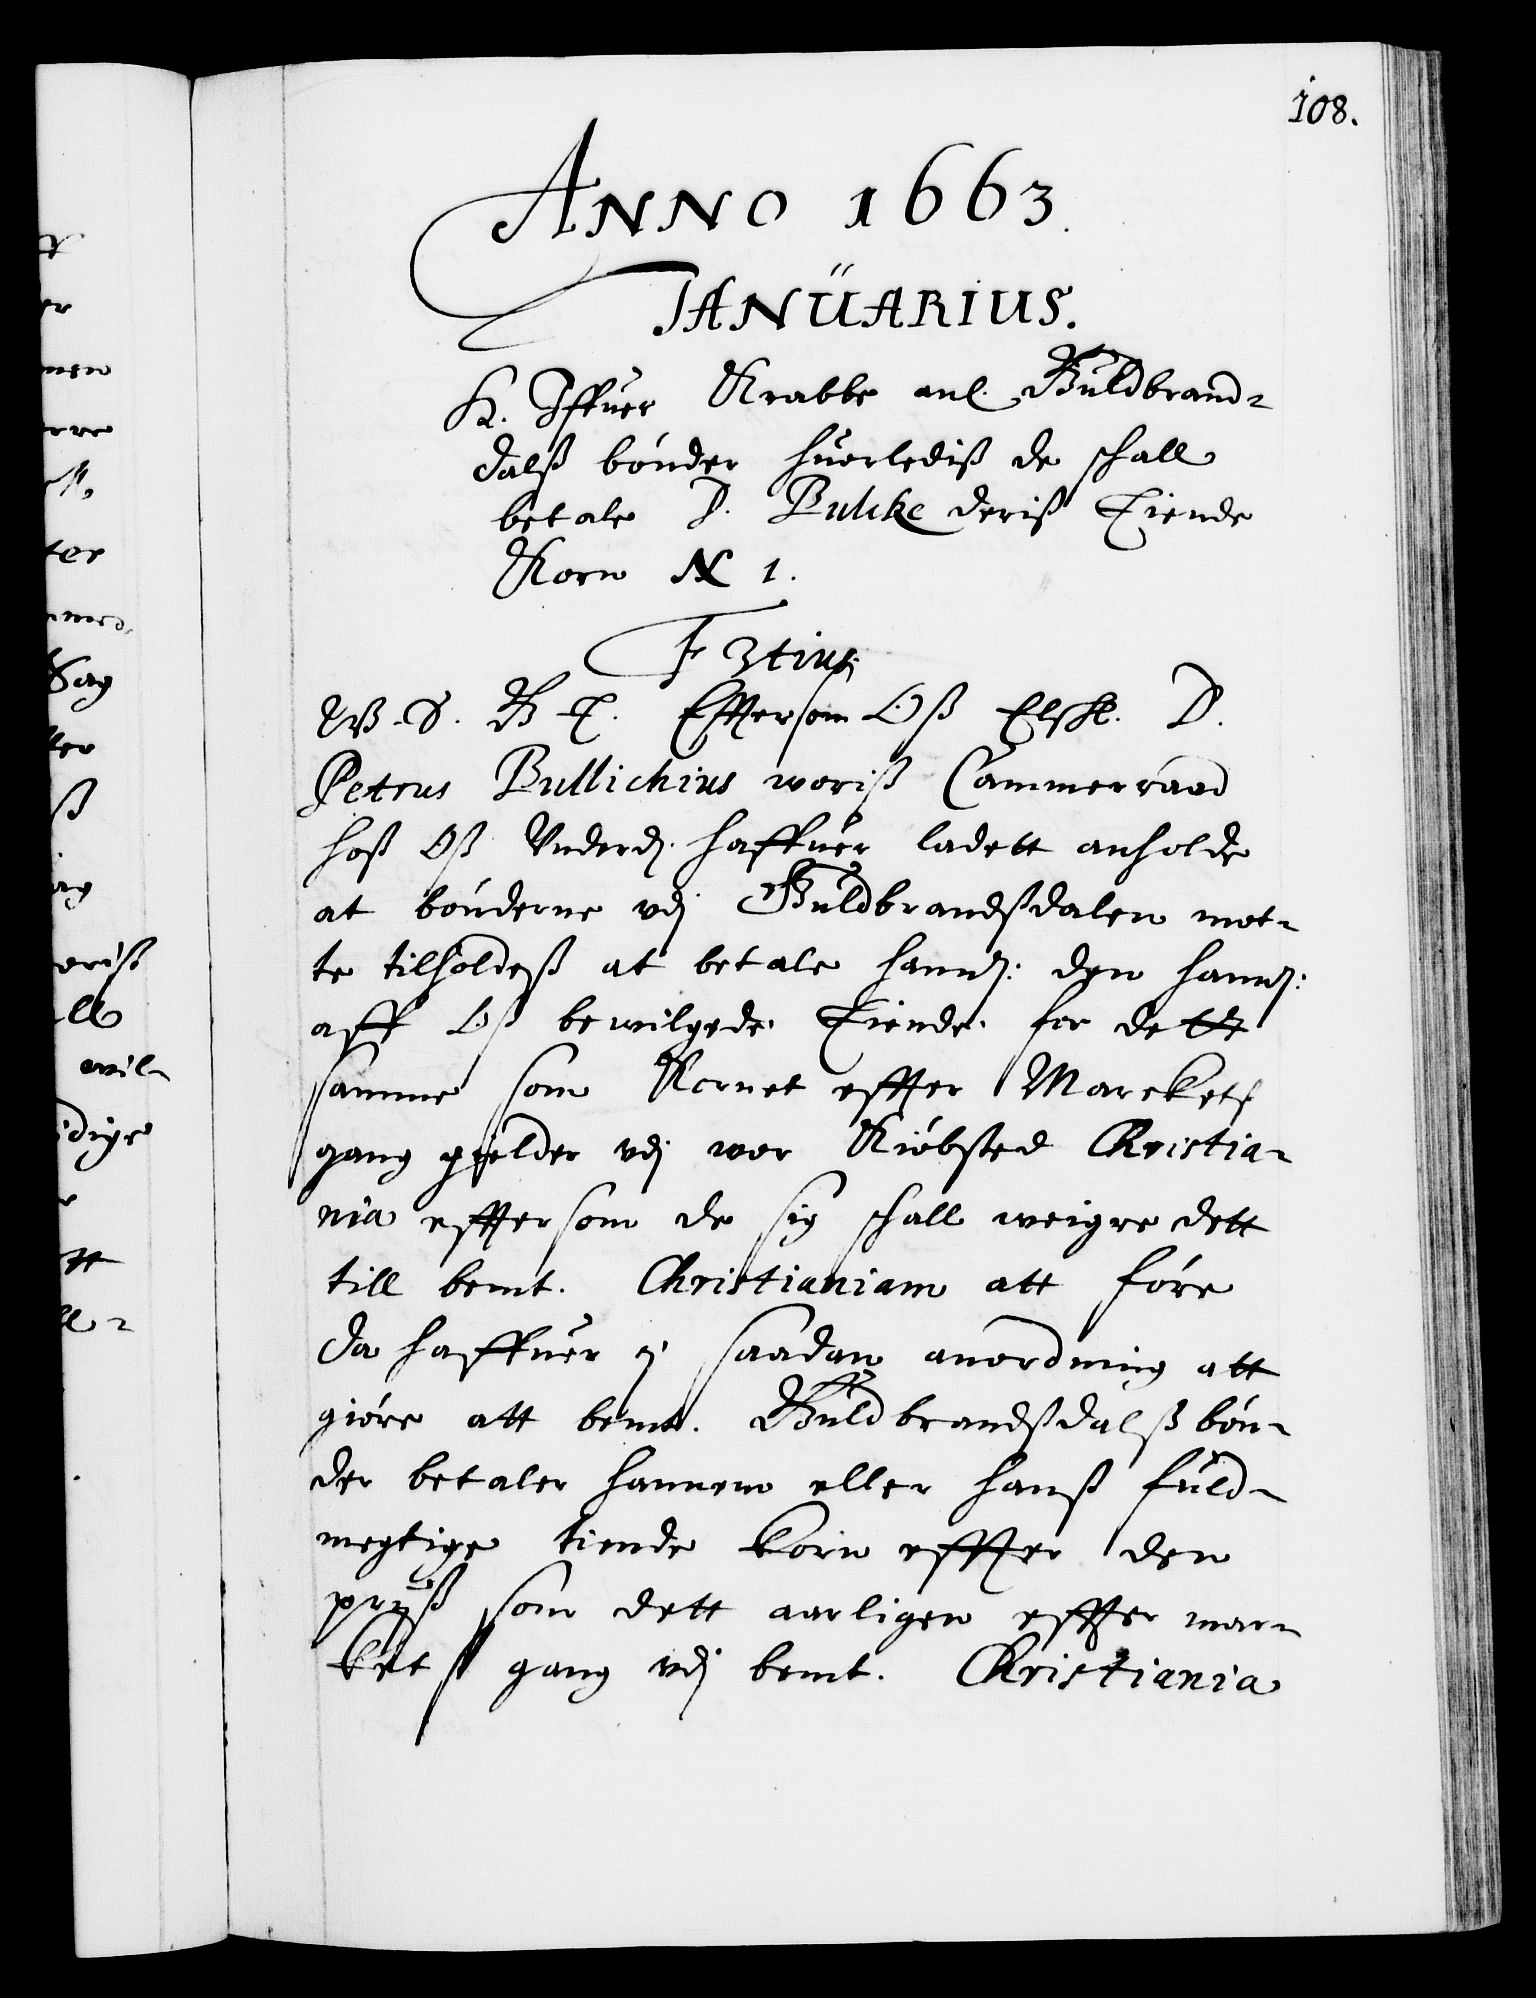 108.
ANNO 1663.
JANÜARIUS.
H. Iffuer Krabbe anl. Guldbrand-
dalß bønder huorlediß de schall
betale D. Bulche deriß Tiende
Korn N 1.
F 3tius
W. S. G T. Effterson Oß Elskl. D.
Petrus Bullichius woriß Cammerraad
hoß Oß Underd. haffuer ladett anholde
at bønderne udj Guldbrandßdalen mot-
te tilholdeß at betale hannd: den hannd:
aff Oß bewilgede Tiende for dette
samme som Kornet effter Marckets
gang gielder udj wor Kiøbsted Christia-
nia effterson de sig schall weigre dett
till bemt. Christianiam att føre
da haffuer j saadan anordning att
giøre att bemt. Guldbrandßdalß bøn-
der betaler hannem eller hanß fuld-
megtige tiende korn effter den
pryß som dett aarligen effter mar-
ketß gang udj bemt. Christiania
men
ter
Sag
ter
ß
oriß
wil-
dige
tt